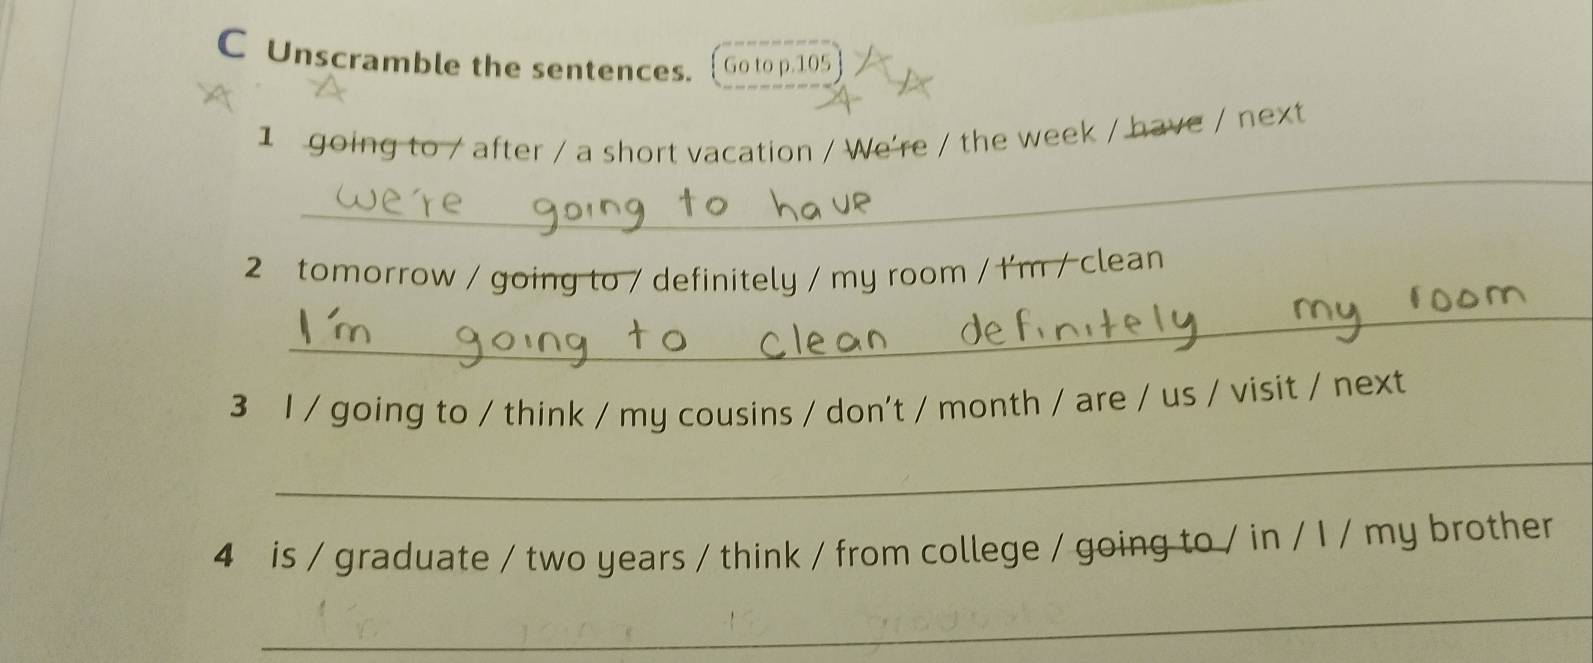 C Unscramble the sentences. Go to p.105
1 going to / after / a short vacation / We're / the week / have / next
we're going to have
2 tomorrow / going to / definitely / my room / I'm / clean
I'm going to clean definitely my room
3 I / going to / think / my cousins / don't / month / are / us / visit / next
4 is / graduate / two years / think / from college / going to / in / I / my brother